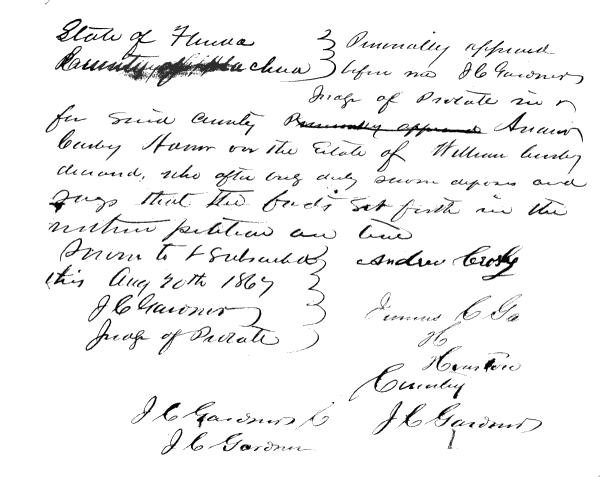 State of Florida
County of Alachua
Personally appeared
before me J C Gardner
Judge of Probate in &
for said County Personally appeared Andrew
Crosby Admr on the Estate of William Crosby
deceased, who after being duly sworn deposes and
says that the facts set forth in the
within petition are true
Sworn to & Subscribed
this Aug 20th 1867
J C Gardner
Judge of Probate
Andrew Crosby
C Ga
H
Houston
County
J C Gardner
J C Gardner
J C Gardner